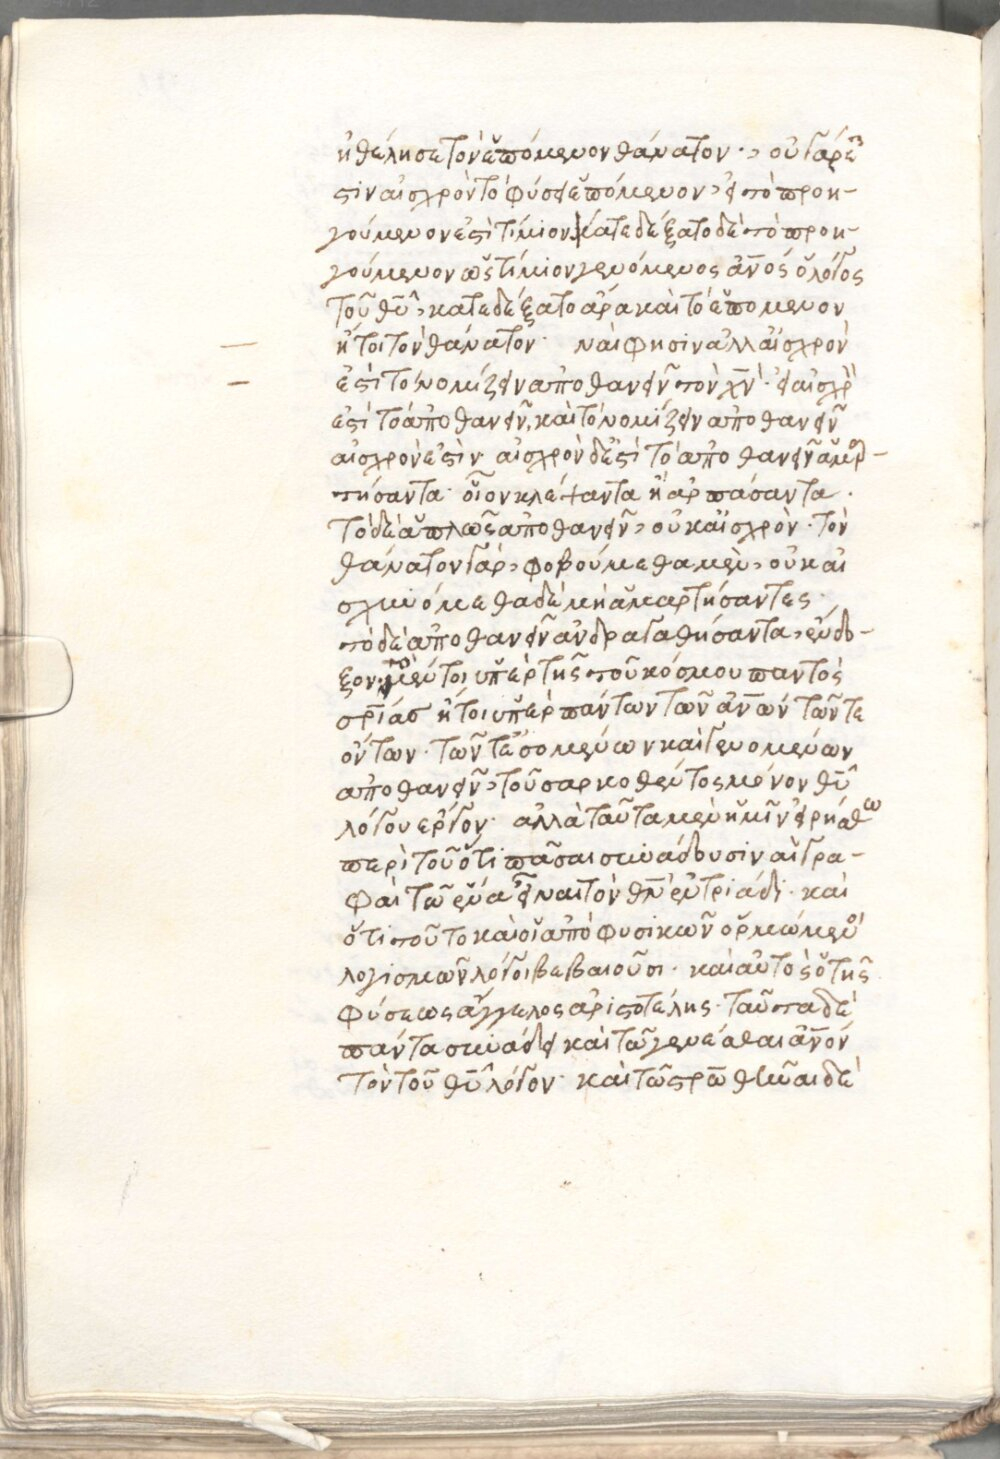 ἠθέλησε τὸν ἑπόμενον θάνατον· οὐ γάρ ἐ
στιν αἰσχρὸν τὸ φύσει ἑπόμενον, εἰ τὸ προη-
γούμενον ἐστὶ τίμιον. κατεδέξατο δὲ τὸ προη-
γούμενον ὡς τίμιον γενόμενος ἄνος ὁ λόγος
τοῦ θυ, κατεδέξατο ἄρα καὶ τὸ ἑπόμενον
ἤτοι τὸν θάνατον· ναί φησιν ἀλλ αἰσχρὸν
ἐστὶ τὸ νομίζειν ἀποθανεῖν τὸν χν· εἰ αἰσχρὸ
ἐστὶ τὸ ἀποθανεῖν, καὶ τὸ νομίζειν ἀποθανεῖν
αἰσχρὸν ἐστὶν· αἰσχρὸν δὲ ἐστὶ τὸ ἀποθανεῖν ἁμαρ-
τήσαντα· οἷον κλέψαντα ἢ ἁρπάσαντα·
τὸ δὲ ἁπλῶς ἀποθανεῖν, οὐκ αἰσχρὸν· τὸν
θάνατον γάρ, φοβούμεθα μὲν, οὐκ αἰ
σχυνόμεθα δὲ μὴ ἁμαρτήσαντες·
τὸ δὲ ἀποθανεῖν ἀνδραγαθήσαντα, εὔδο-
ξον· τὸ μέντοι ὑπὲρ τῆς τοῦ κόσμου παντὸς
σρίας ἤτοι ὑπὲρ πάντων τῶν ἀνων τῶν τε
ὄντων· τῶν τε ἐσομένων καὶ γενομένων
ἀποθανεῖν, τοῦ σαρκοθέντος μόνον θυ
λόγου ἔργον· ἀλλὰ ταῦτα μὲν ἡμῖν εἰρήσθω
περὶ τοῦ ὅτι πᾶσαι συνάδουσιν αἱ γρα-
φαὶ τῶ ἕνα εἶναι τὸν θν ἐν τριάδι· καὶ
ὅτι τοῦτο καὶ οἱ ἀπὸ φυσικῶν ὁρμώμενοι
λογισμῶν λόγοι βεβαιοῦσι· καὶ αὐτὸς ὁ τῆς
φύσεως ἄγγελος ἀριστοτέλης· ταῦτα δὲ
πάντα συνάδει καὶ τῶ γενέσθαι ἄνον
τὸν τοῦ θυ λόγον· καὶ τῶ στρω θῆναι δὲ